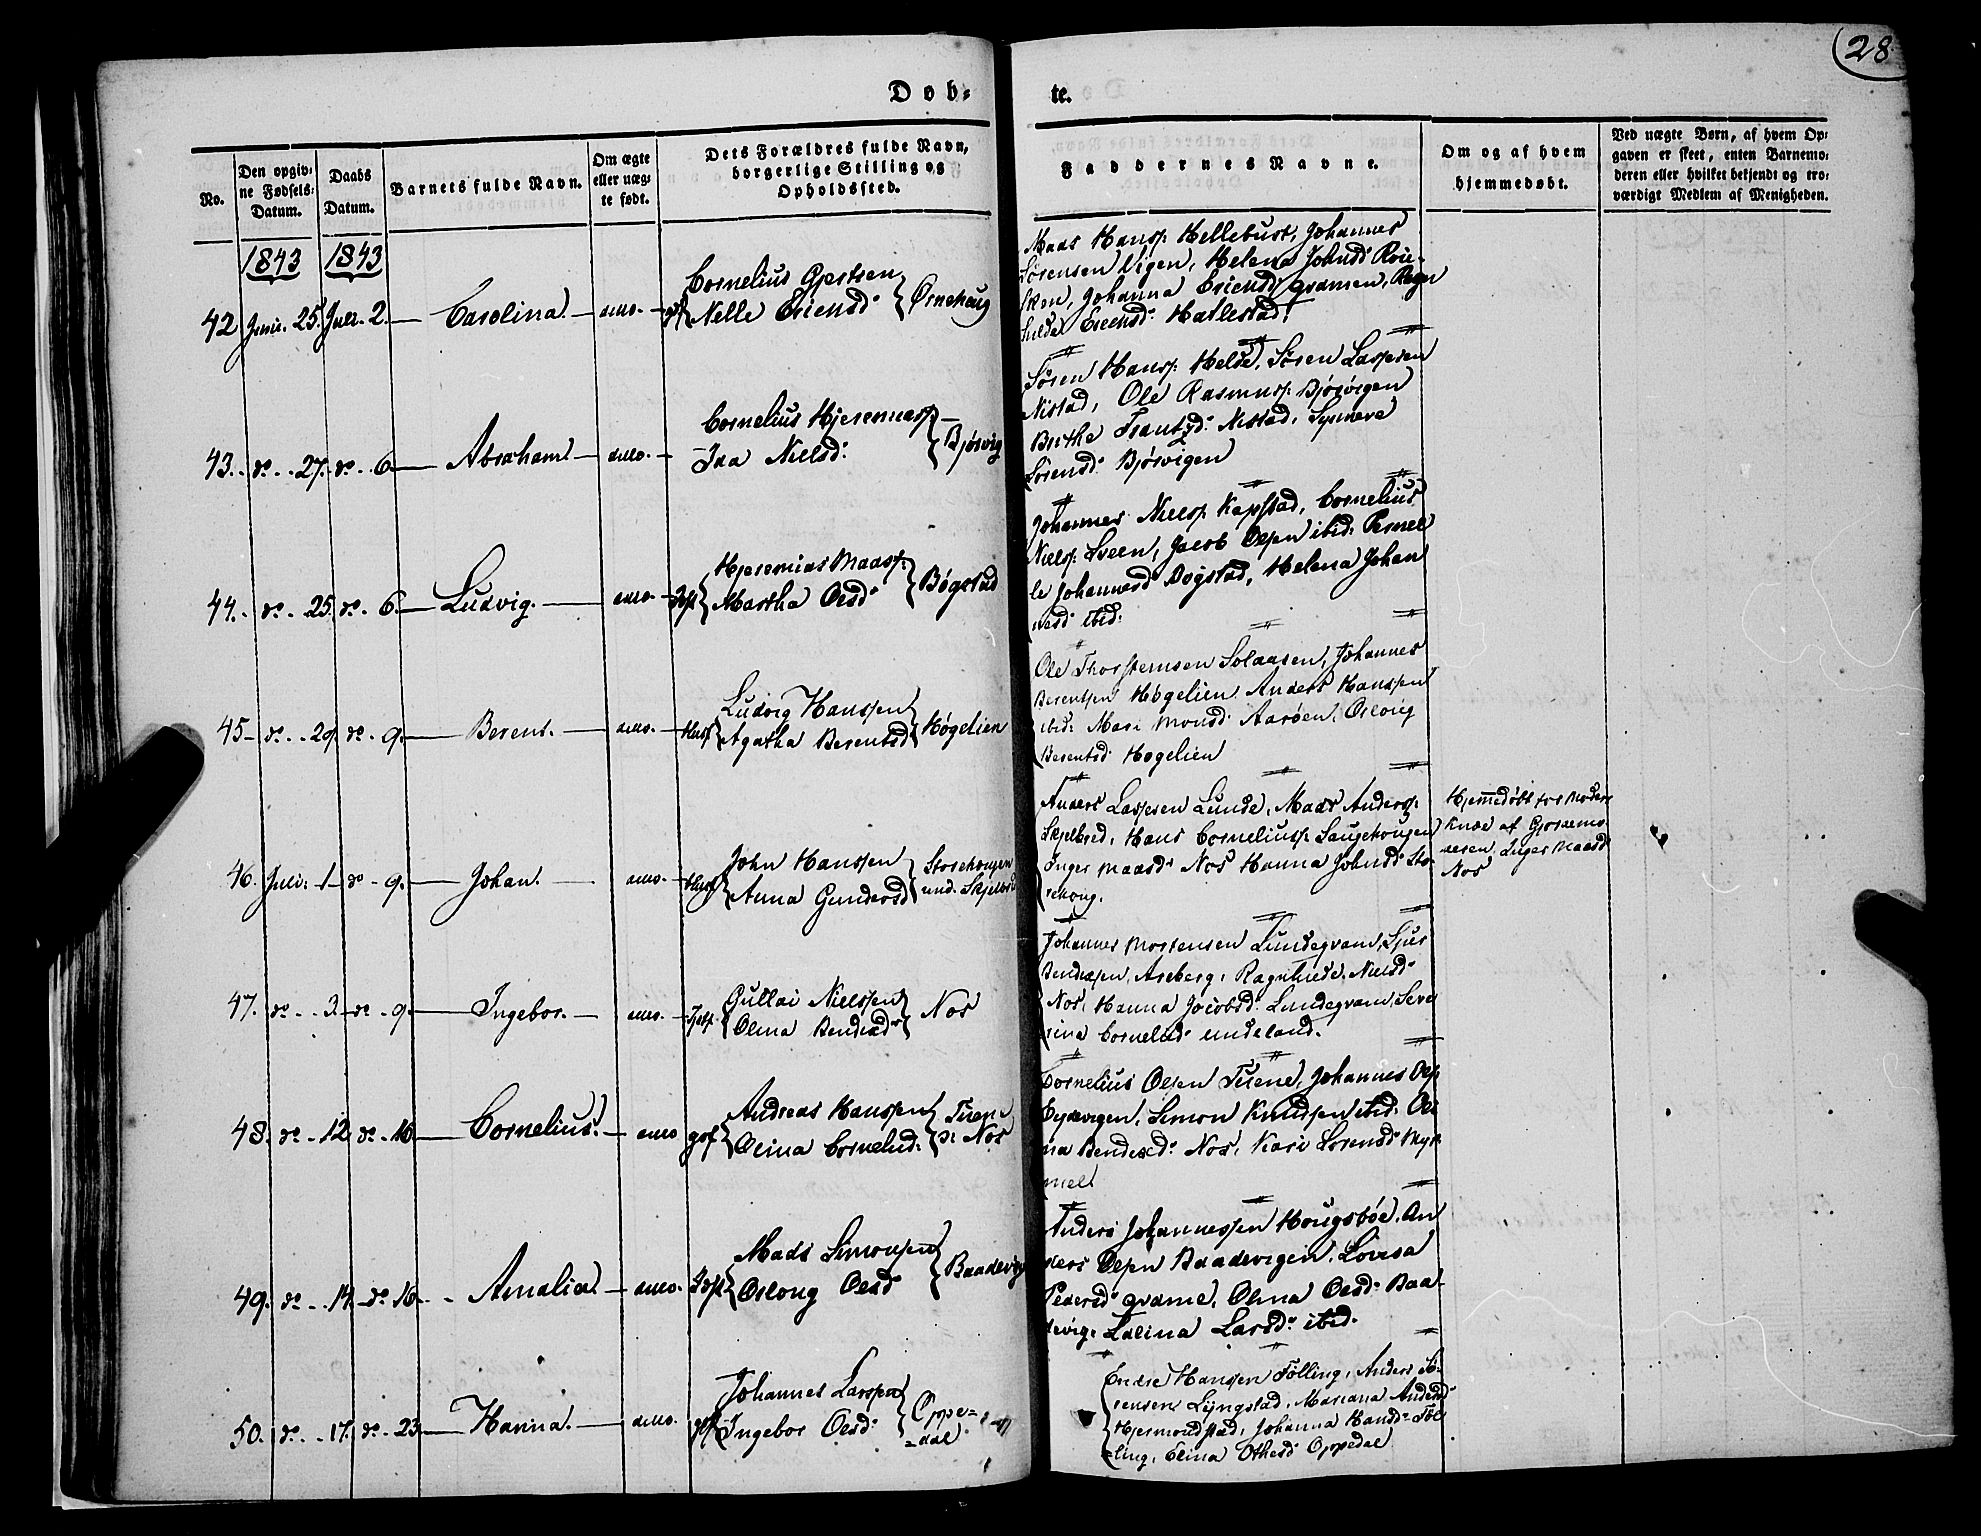 28
Døb-
te.
No.
Den opgiv-
ne Fødsels-
Datum.
Daabs
Datum.
Barnets fulde Navn.
Om ægte
eller uæg-
te født.
Dets Forældres fulde Navn,
borgerlige Stilling og
Opholdssted.
Faddernes Navne.
Om og af hvem
hjemmedøbt.
Ved uægte Børn, af hvem Op-
gaven er skeet, enten Barnemo-
deren eller hvilket bekjendt og tro-
værdigt Medlem af Menigheden.
1843 1843
42 Juni. 25. Juli. 2. Carolina
Cornelius Gjertsen
Nelle Ericnsd: Ørnehaug
Mads Hanss: Hellebust, Johannes
Sørensen Vigen, Helena Johnsd: Röie-
Johanna Gramen, Ragn
hilda Hatlestad.
43. do. 27. do. 6. Abraham
Cornelius
Ida Nielsd: Bjørvig
Søren Hanss: Helle, Søren Lassesen
Nistad, Ole Rasmuss: Bjørvigen
Brithe Frantzd: Nistad, Synneva
Sørensd: Bjørvigen
44. do. 25. do. 6. Ludvig.
Hjeremias Madss:
Martha Olsd: Bøgstad
Johannes Nielss: Kapstad, Cornelius
Nielss: Sveen, Jacob Olsen ibid: Pernel
le Johannesd: Bøgstad, Helena Johan
nesd: ibid:
45 do. 29 do. 9. Berent.
Husf
Ludvig Hanssen
Agatha Berentsd Høgelien
Ole Thorstensen Solaasen, Johannes
Berentsen Høgelien, Anders Hanssen
ibid: Mari Monsd: Aarøen, Oslong
Berentsd: Høgelien
46. Juli: 1 do. 9. Johan.
Husf
John Hanssen
Anna Gundersd
Storehougen
und. Skjelbred
Anders Lassesen Lunde, Mads Anderss:
Skjelbred, Hans Corneliuss: Saugehougen
Inger Madsd: Nos, Hanna Johnsd: Sto-
rehoug.
Hjemmedøbt for Moders
Knæ af Gjordemo-
deren Inger Madsd:
Nos
47. do. 3. do. 9. Ingebor.
Gullai Nielssen
Olina Bendixd: Nos
Johannes Mortensen Lundegram, Sjur
Bendixsen, Areberg, Ragnhilde Nielsd:
Nos, Hanna Jacobsd: Lundegram, Seve
rina Cornelsd: undeland.
48. do. 12 do. 16 Cornelius.
gbf
Andreas Hanssen
Olina Cornelisd: Nos
Cornelius Olsen Tuene, Johannes Ols:
Eydevigen, Simon Knudsen ibid: Oli
na Bendixd: Nos, Kari Sørensd: Myk
mel.
49. do. 14. do. 16. Amalia
Mads Simonsen
Oslong Olsd: Baadevig
Anders Johannessen Hougsbøe, An
ders Olsen Baadevigen, Lovisa
Pedersd: Grame, Olina Olsd: Baa-
devig, Lalina Larsd: ibid.
50. do. 17. do. 23 Hanna.
Johannes Larssen
Ingebor Olsd:
Oppe=
=dal
Endre Hanssen Tølling, Anders Sø-
rensen Lyngstad, Mariana Andersd:
Hjermundstad, Johanna Hansd: Töl
=ling, Elina Othesd: Oppedal